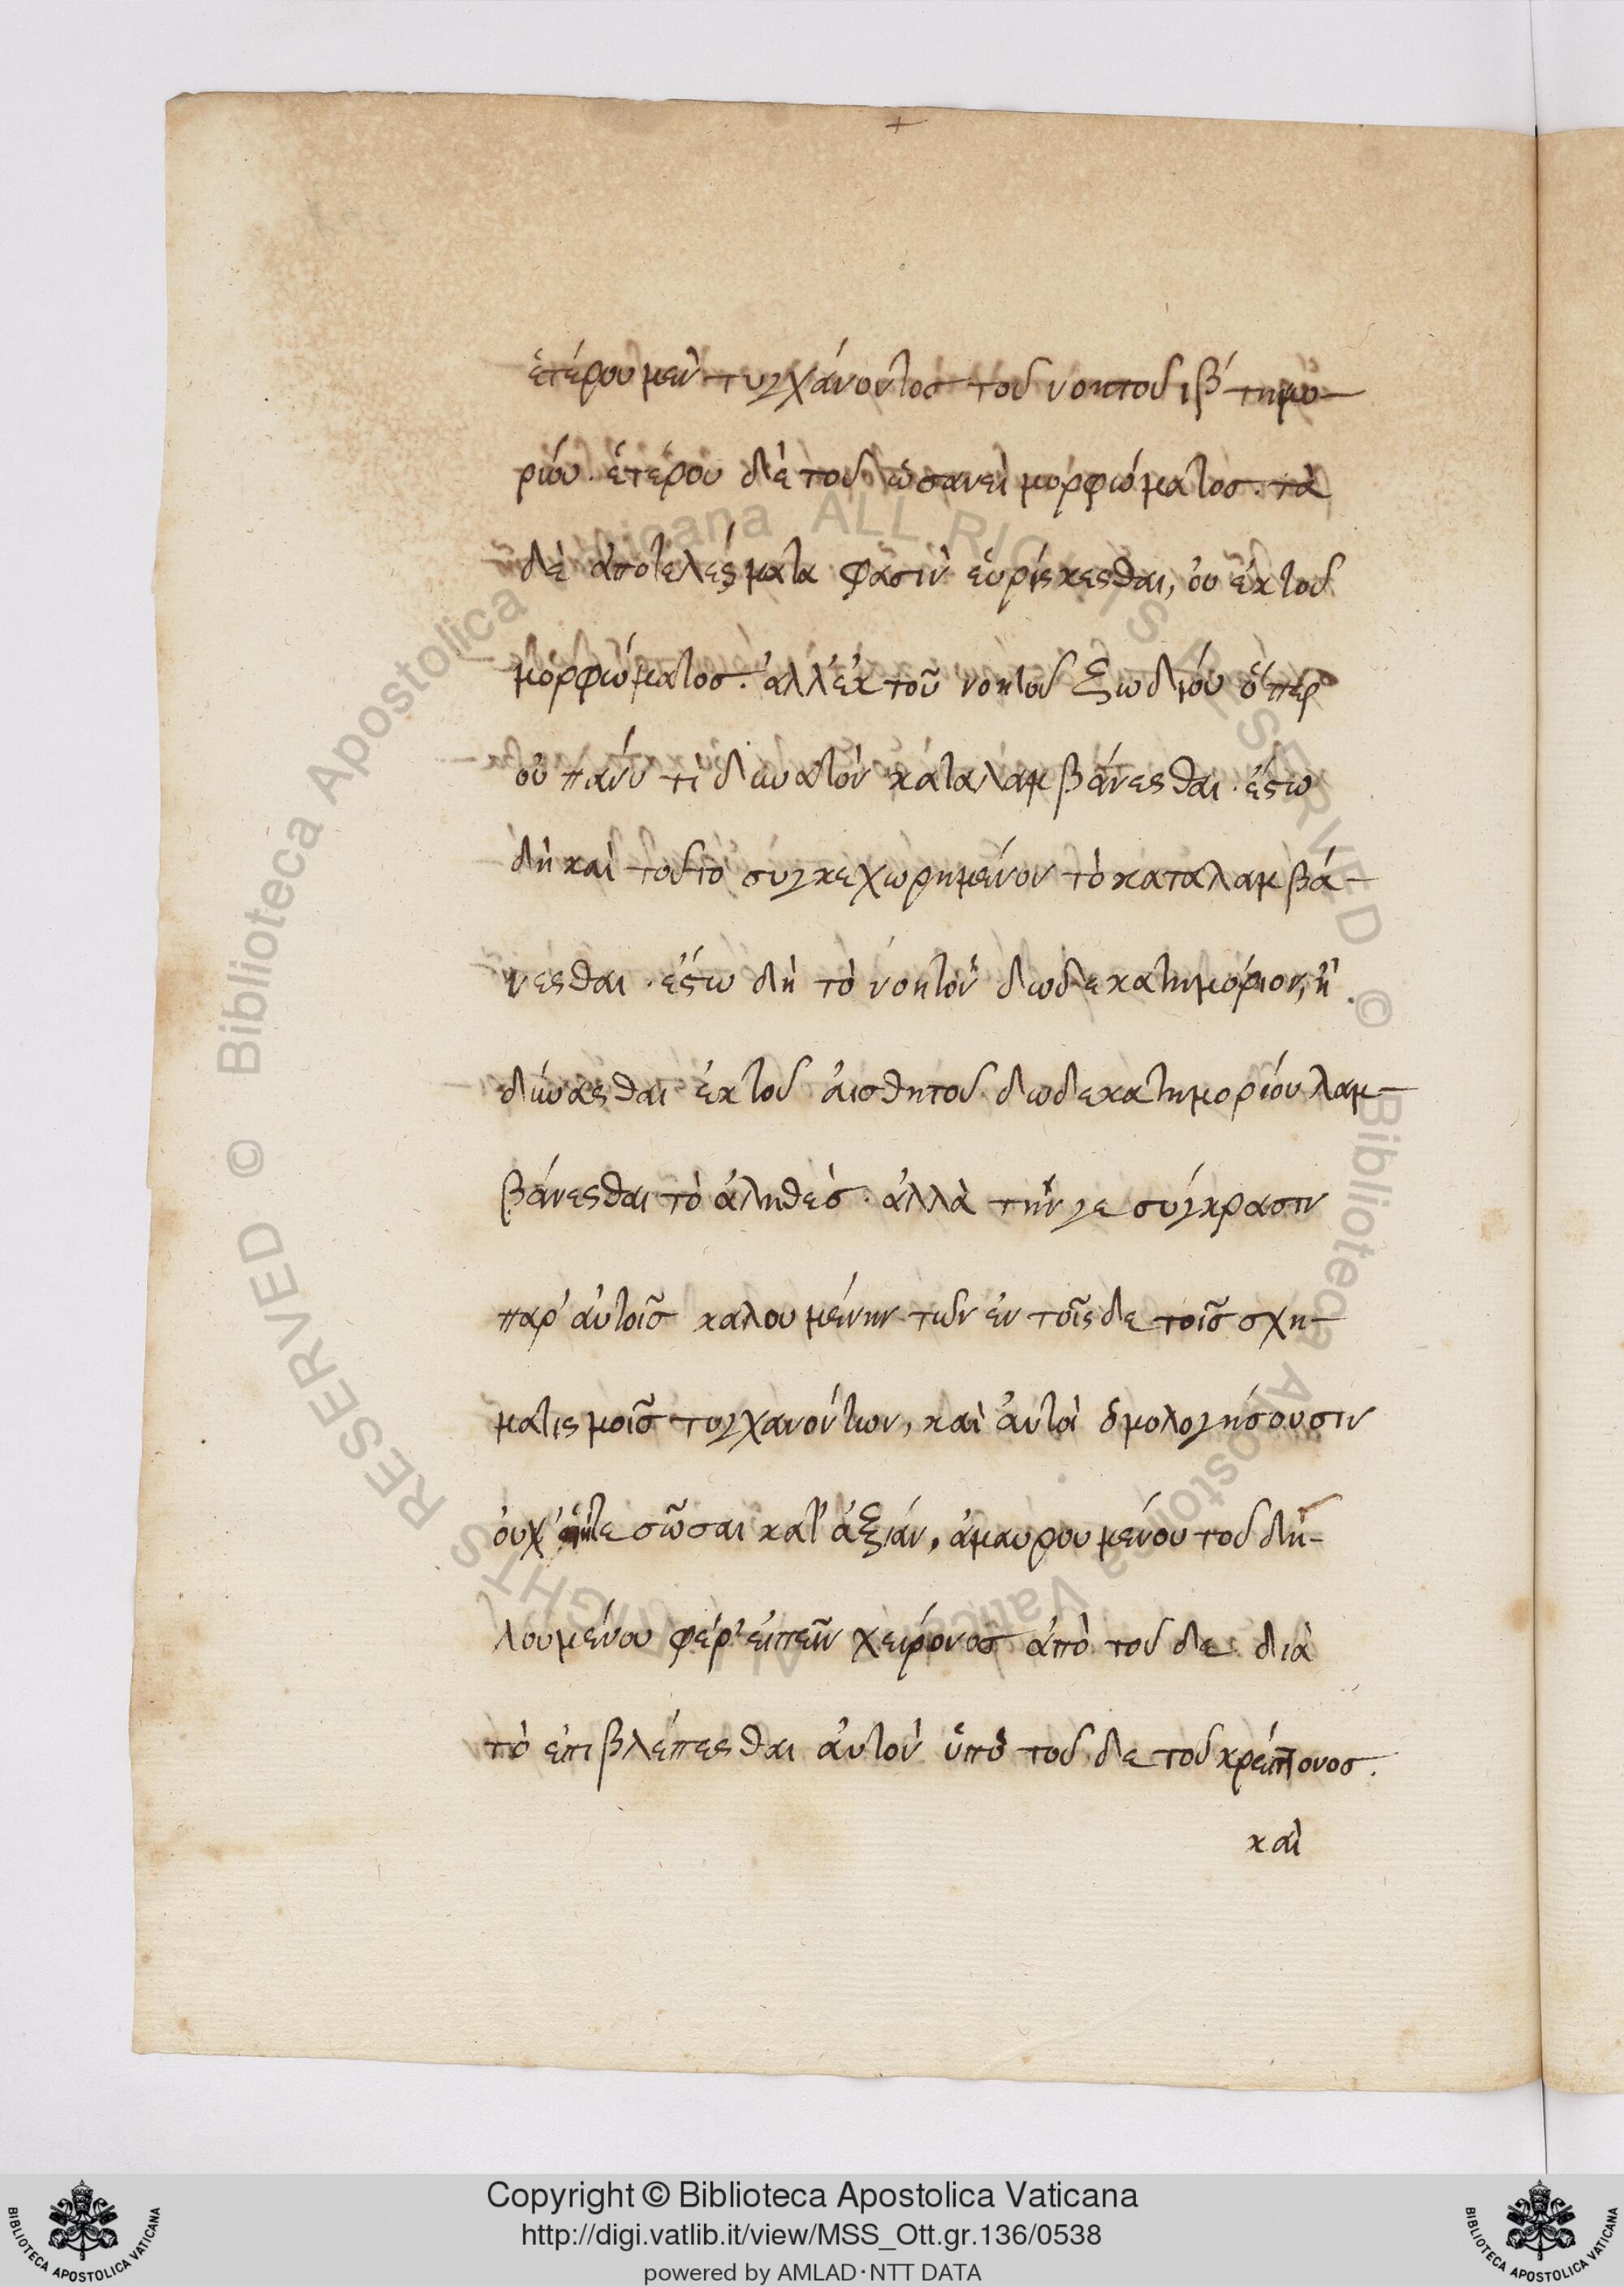 ἑτέρου μὲν τυγχάνοντος τοῦ νοητοῦ ιβ´ τημο-
ρίου. ἑτέρου δὲ τοῦ ὡσανεὶ μορφώματος. τὰ
δὲ ἀποτελέσματα φασὶν εὑρίσκεσθαι, οὐ ἐκ τοῦ
μορφώματος. ἀλλ' ἐκ τοῦ νοητοῦ ζωδίου ὅπερ
οὐ πάνυ τι δυνατὸν καταλαμβάνεσθαι. ἔστω
δὴ καὶ τοῦτο συγκεχωρημένον τὸ καταλαμβά-
νεσθαι. ἔστω δὴ τὸ νοητὸν δωδεκατημόριον, ἢ
δύνασθαι ἐκ τοῦ αἰσθητοῦ δωδεκατημορίου λαμ-
βάνεσθαι τὸ ἀληθές. ἀλλὰ τήν γε σύγκρασιν
παρ' αὐτοῖς καλουμένην τῶν ἐν τοῖσδε τοῖς σχη-
ματισμοῖς τυγχανόντων, καὶ αὐτοὶ ὁμολογήσουσιν
οὐχ σῶσαι κατ' ἀξίαν, ἀμαυρουμένου τοῦ δη-
λουμένου φέρ' εἰπεῖν χείρονος ἀπὸ τοῦδε διὰ
τὸ ἐπιβλέπεσθαι αὐτὸν ὑπὸ τοῦδε τοῦ κρείττονος.
καὶ
Copyright © Biblioteca Apostolica Vaticana
http://digi.vatlib.it/view/MSS_Ott.gr.136/0538
powered by AMLAD·NTT DATA
BIBLIOTECA APOSTOLICA VATICANA
BIBLIOTECA APOSTOLICA VATICANA
© Biblioteca Apostolica Vaticana ALL RIGHTS RESERVED
© Biblioteca Apostolica Vaticana ALL RIGHTS RESERVED